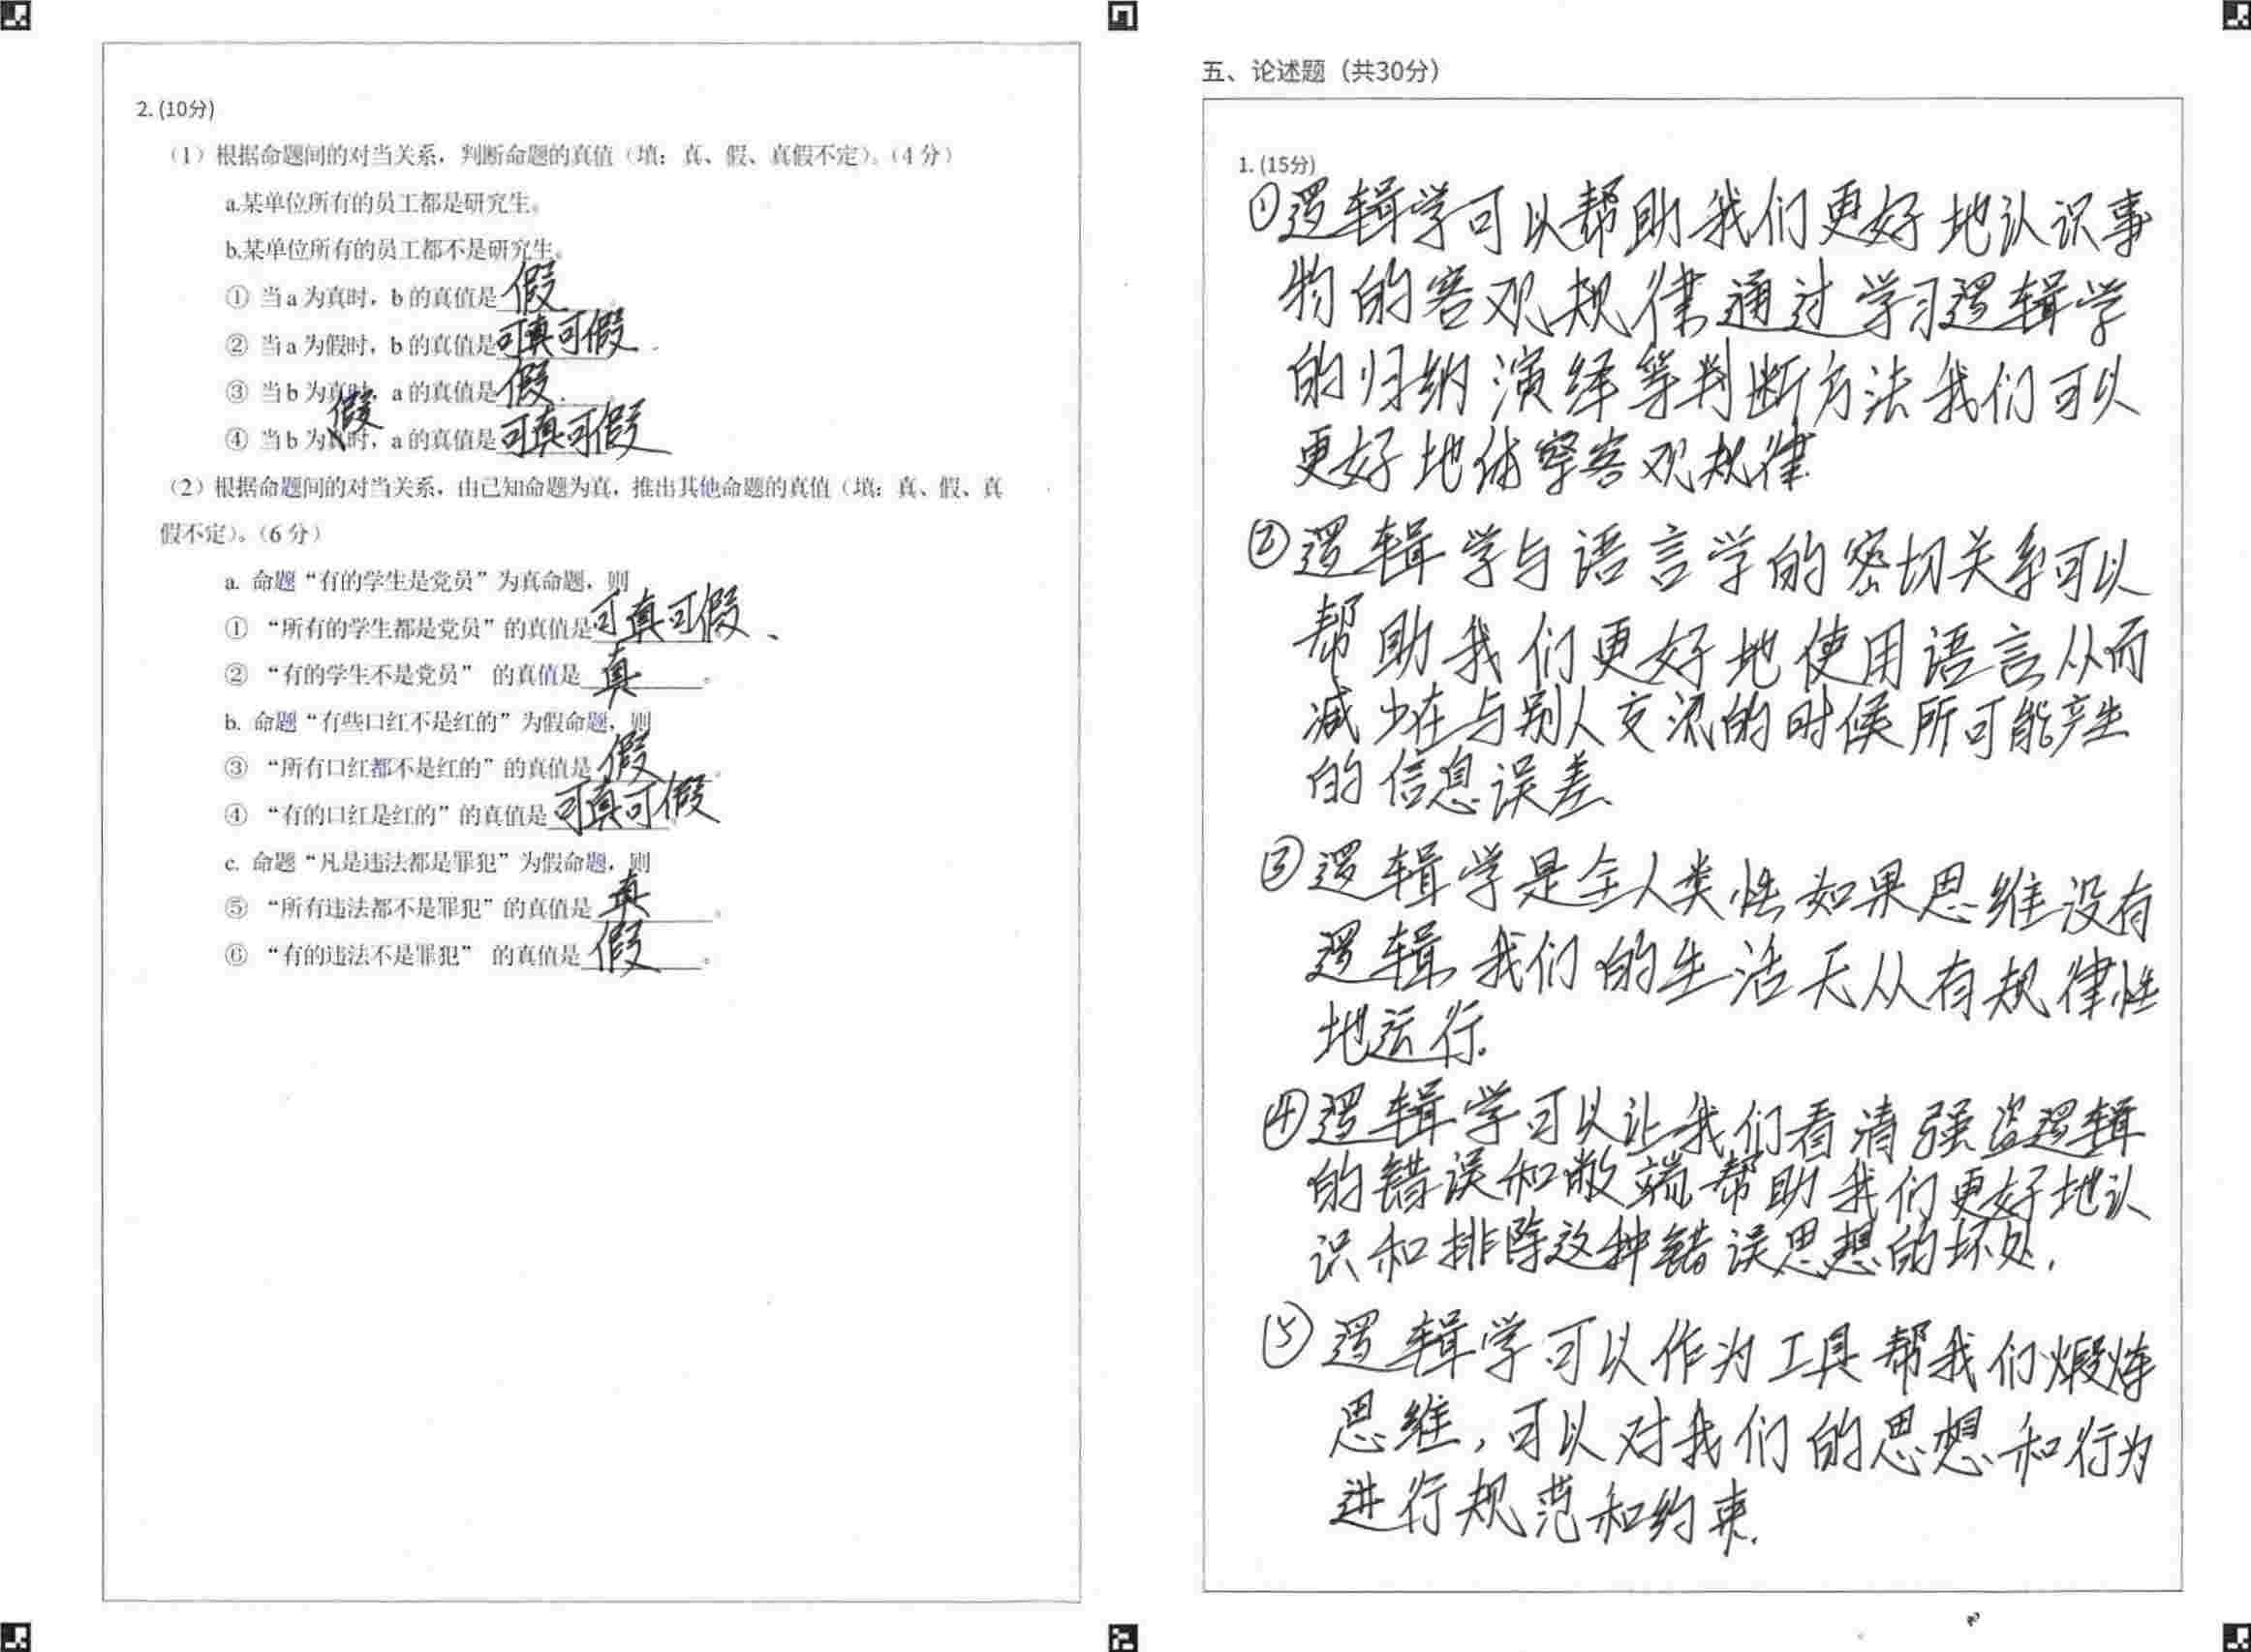 2. (10分)
（1）根据命题间的对当关系，判断命题的真值（填：真、假、真假不定）。（4 分）
a.某单位所有的员工都是研究生。
b.某单位所有的员工都不是研究生。
① 当 a 为真时，b 的真值是 假 。
② 当 a 为假时，b 的真值是 可真可假
③ 当 b 为真时，a 的真值是 假 。
假
④ 当 b 为真时，a 的真值是 可真可假
（2）根据命题间的对当关系，由已知命题为真，推出其他命题的真值（填：真、假、真
假不定）。（6 分）
a. 命题“有的学生是党员”为真命题，则
① “所有的学生都是党员”的真值是 可真可假 、
② “有的学生不是党员” 的真值是 真 。
b. 命题“有些口红不是红的”为假命题，则
③ “所有口红都不是红的”的真值是 假 。
④ “有的口红是红的”的真值是 可真可假 。
c. 命题“凡是违法都是罪犯”为假命题，则
⑤ “所有违法都不是罪犯”的真值是 真 。
⑥ “有的违法不是罪犯” 的真值是 假 。
五、论述题（共30分）
1. (15分)
①逻辑学可以帮助我们更好地认识事
物的客观规律.通过学习逻辑学
的归纳演绎等判断方法我们可以
更好地体察客观规律.
②逻辑学与语言学的密切关系可以
帮助我们更好地使用语言从而
减少在与别人交流的时候所可能产生
的信息误差.
③逻辑学是全人类性如果思维没有
逻辑,我们的生活无从有规律性
地运行.
④逻辑学可以让我们看清强盗逻辑
的错误和敝端,帮助我们更好地认
识和排除这种错误思想的坏处.
⑤逻辑学可以作为工具帮我们煅炼
思维,可以对我们的思想和行为
进行规范和约束.